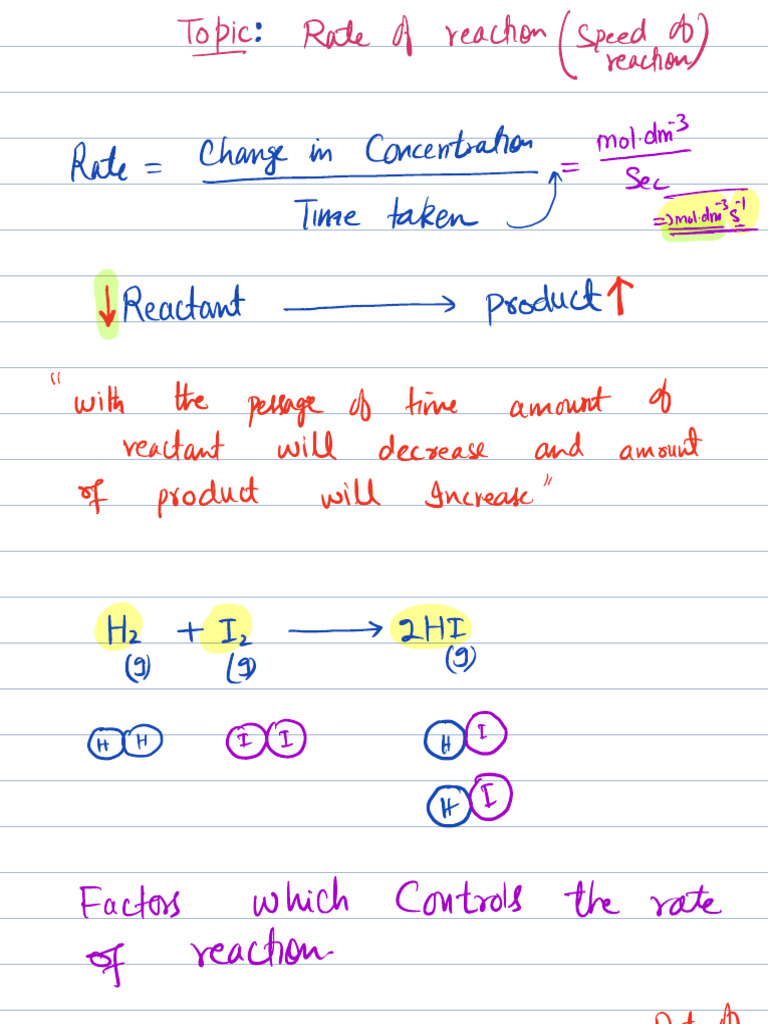 Topic: Rate of reaction (Speed of reaction)
Rate = Change in Concentration / Time taken = mol·dm⁻³ / Sec
=> mol·dm⁻³ s⁻¹
↓ Reactant ⟶ product ↑
"with the pessage of time amount of
reactant will decrease and amount
of product will Increase"
H₂ + I₂ ⟶ 2HI
(g) (g) (g)
H H I I H I
H I
Factors which Controls the rate
of reaction